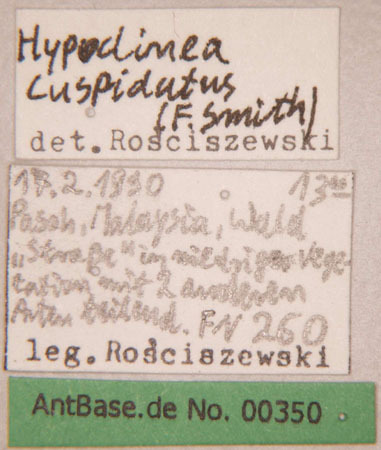 Hypoclinea
cuspidatus
(F. Smith)
det. Rosciszewski
17.2.1990 13⁰⁰
Pasoh, Malaysia, Wald
„Straße“ in niedriger Vege-
tation mit 2 anderen
Arten FN 260
leg. Rosciszewski
AntBase.de No. 00350